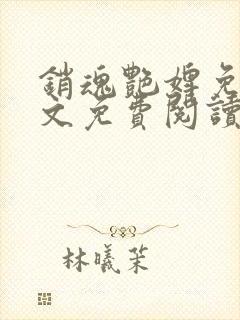 銷魂艷婢免
文免費閱讀
林曦茉